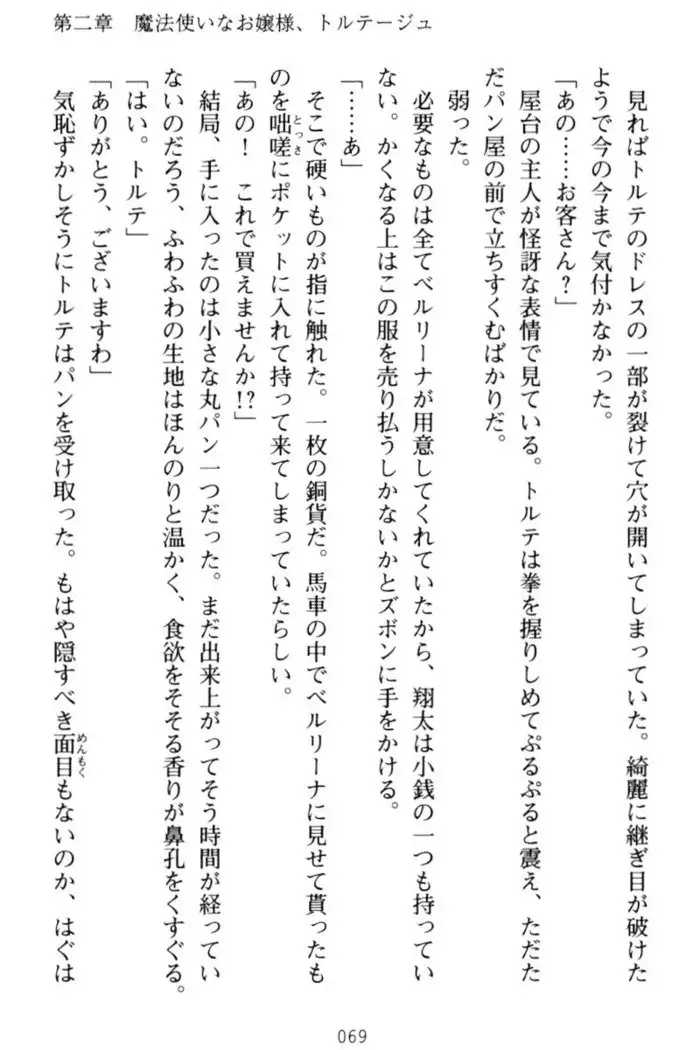 第二章　魔法使いなお嬢様、トルテージュ
　見ればトルテのドレスの一部が裂けて穴が開いてしまっていた。綺麗に継ぎ目が破けた
ようで今の今まで気付かなかった。
「あの……お客さん？」
　屋台の主人が怪訝な表情で見ている。トルテは拳を握りしめてぷるぷると震え、ただた
だパン屋の前で立ちすくむばかりだ。
　弱った。
　必要なものは全てベルリーナが用意してくれていたから、翔太は小銭の一つも持ってい
ない。かくなる上はこの服を売り払うしかないかとズボンに手をかける。
「……あ」
　そこで硬いものが指に触れた。一枚の銅貨だ。馬車の中でベルリーナに見せて貰ったも
のを咄嗟とっさにポケットに入れて持って来てしまっていたらしい。
「あの！　これで買えませんか!?」
　結局、手に入ったのは小さな丸パン一つだった。まだ出来上がってそう時間が経ってい
ないのだろう、ふわふわの生地はほんのりと温かく、食欲をそそる香りが鼻孔をくすぐる。
「はい。トルテ」
「ありがとう、ございますわ」
　気恥ずかしそうにトルテはパンを受け取った。もはや隠すべき面目めんもくもないのか、はぐは
069